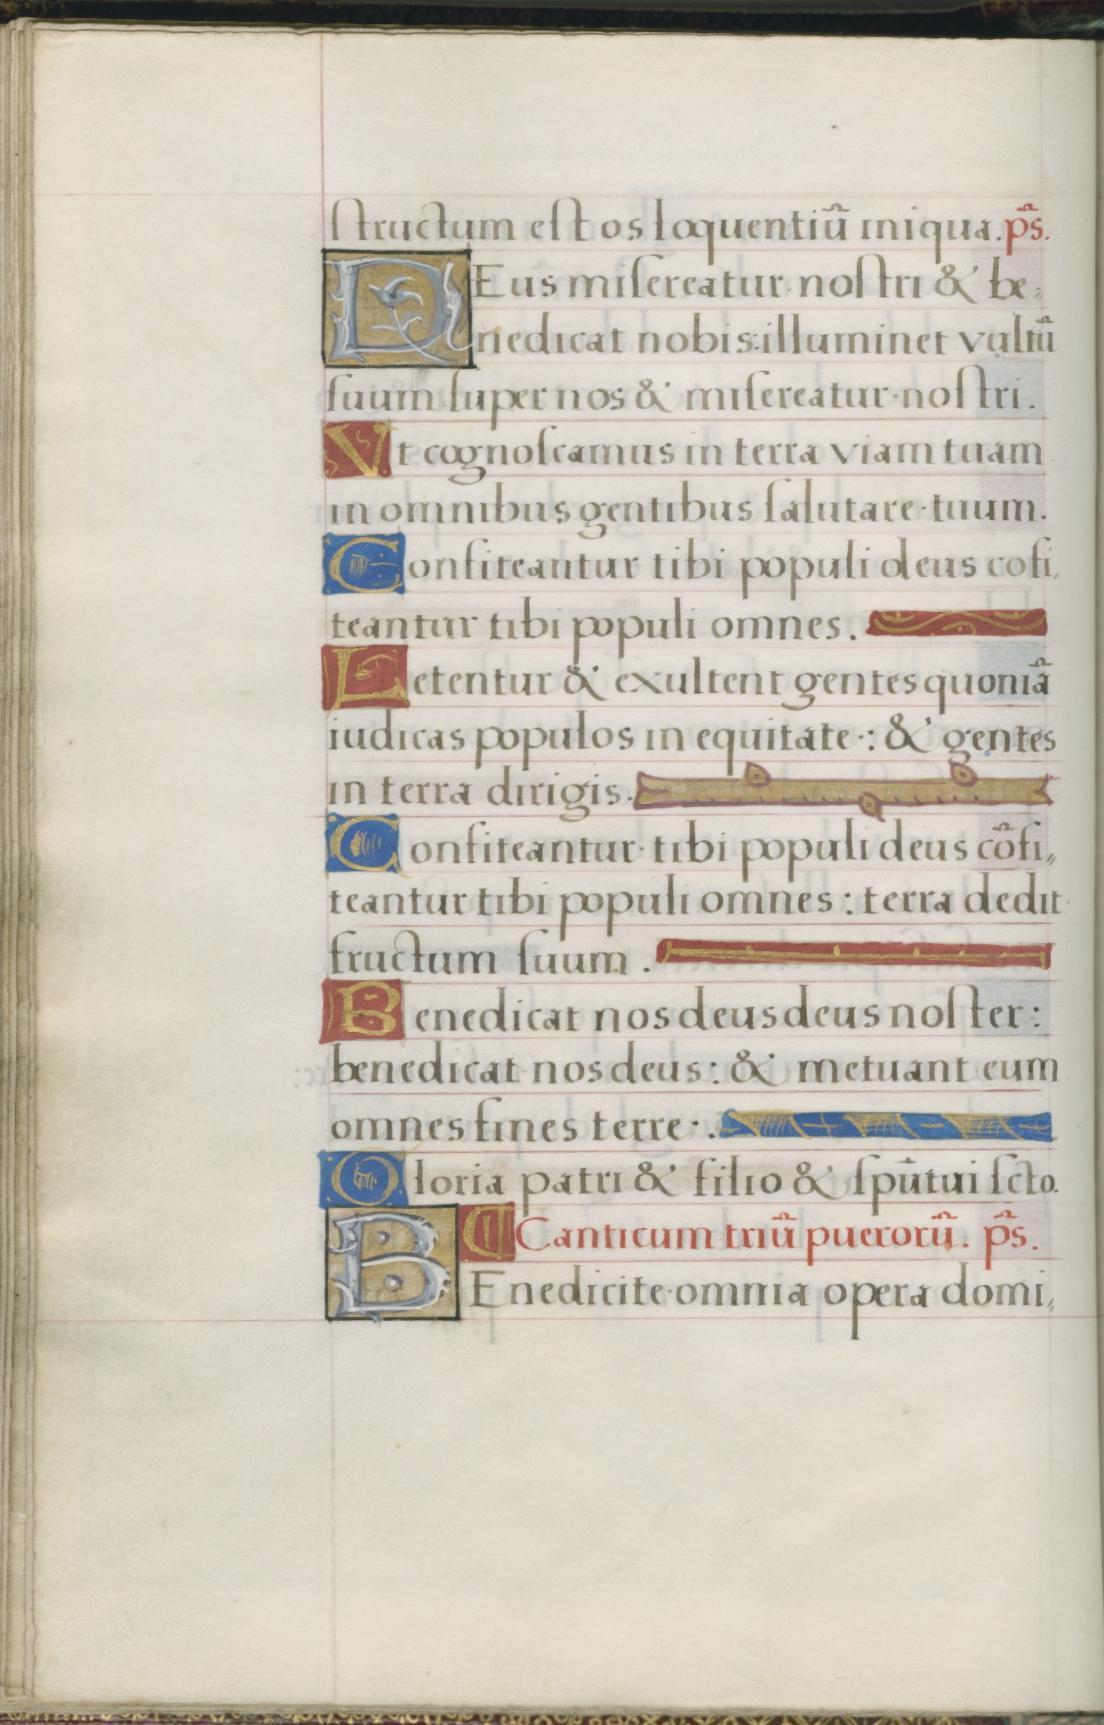 ſtructum eſt os loquentiū iniqua. p̄s.
DEus miſereatur noſtri & be,
nedicat nobis: illuminet vultū
ſuum ſuper nos & miſereatur noſtri.
Vt cognoſcamus in terra viam tuam
in omnibus gentibus ſalutare tuum.
Confiteantur tibi populi deus cofi,
teantur tibi populi omnes.
Letentur & exultent gentes quoniā
iudicas populos in equitate: & gentes
in terra dirigis.
Confiteantur tibi populi deus cōfi,
teantur tibi populi omnes: terra dedit
fructum ſuum.
Benedicat nos deus deus noſter:
benedicat nos deus: & metuant eum
omnes fines terre.
Gloria patri & filio & ſpūtui ſcto.
Canticum triū puerorū. p̄s.
BEnedicite omnia opera domi,